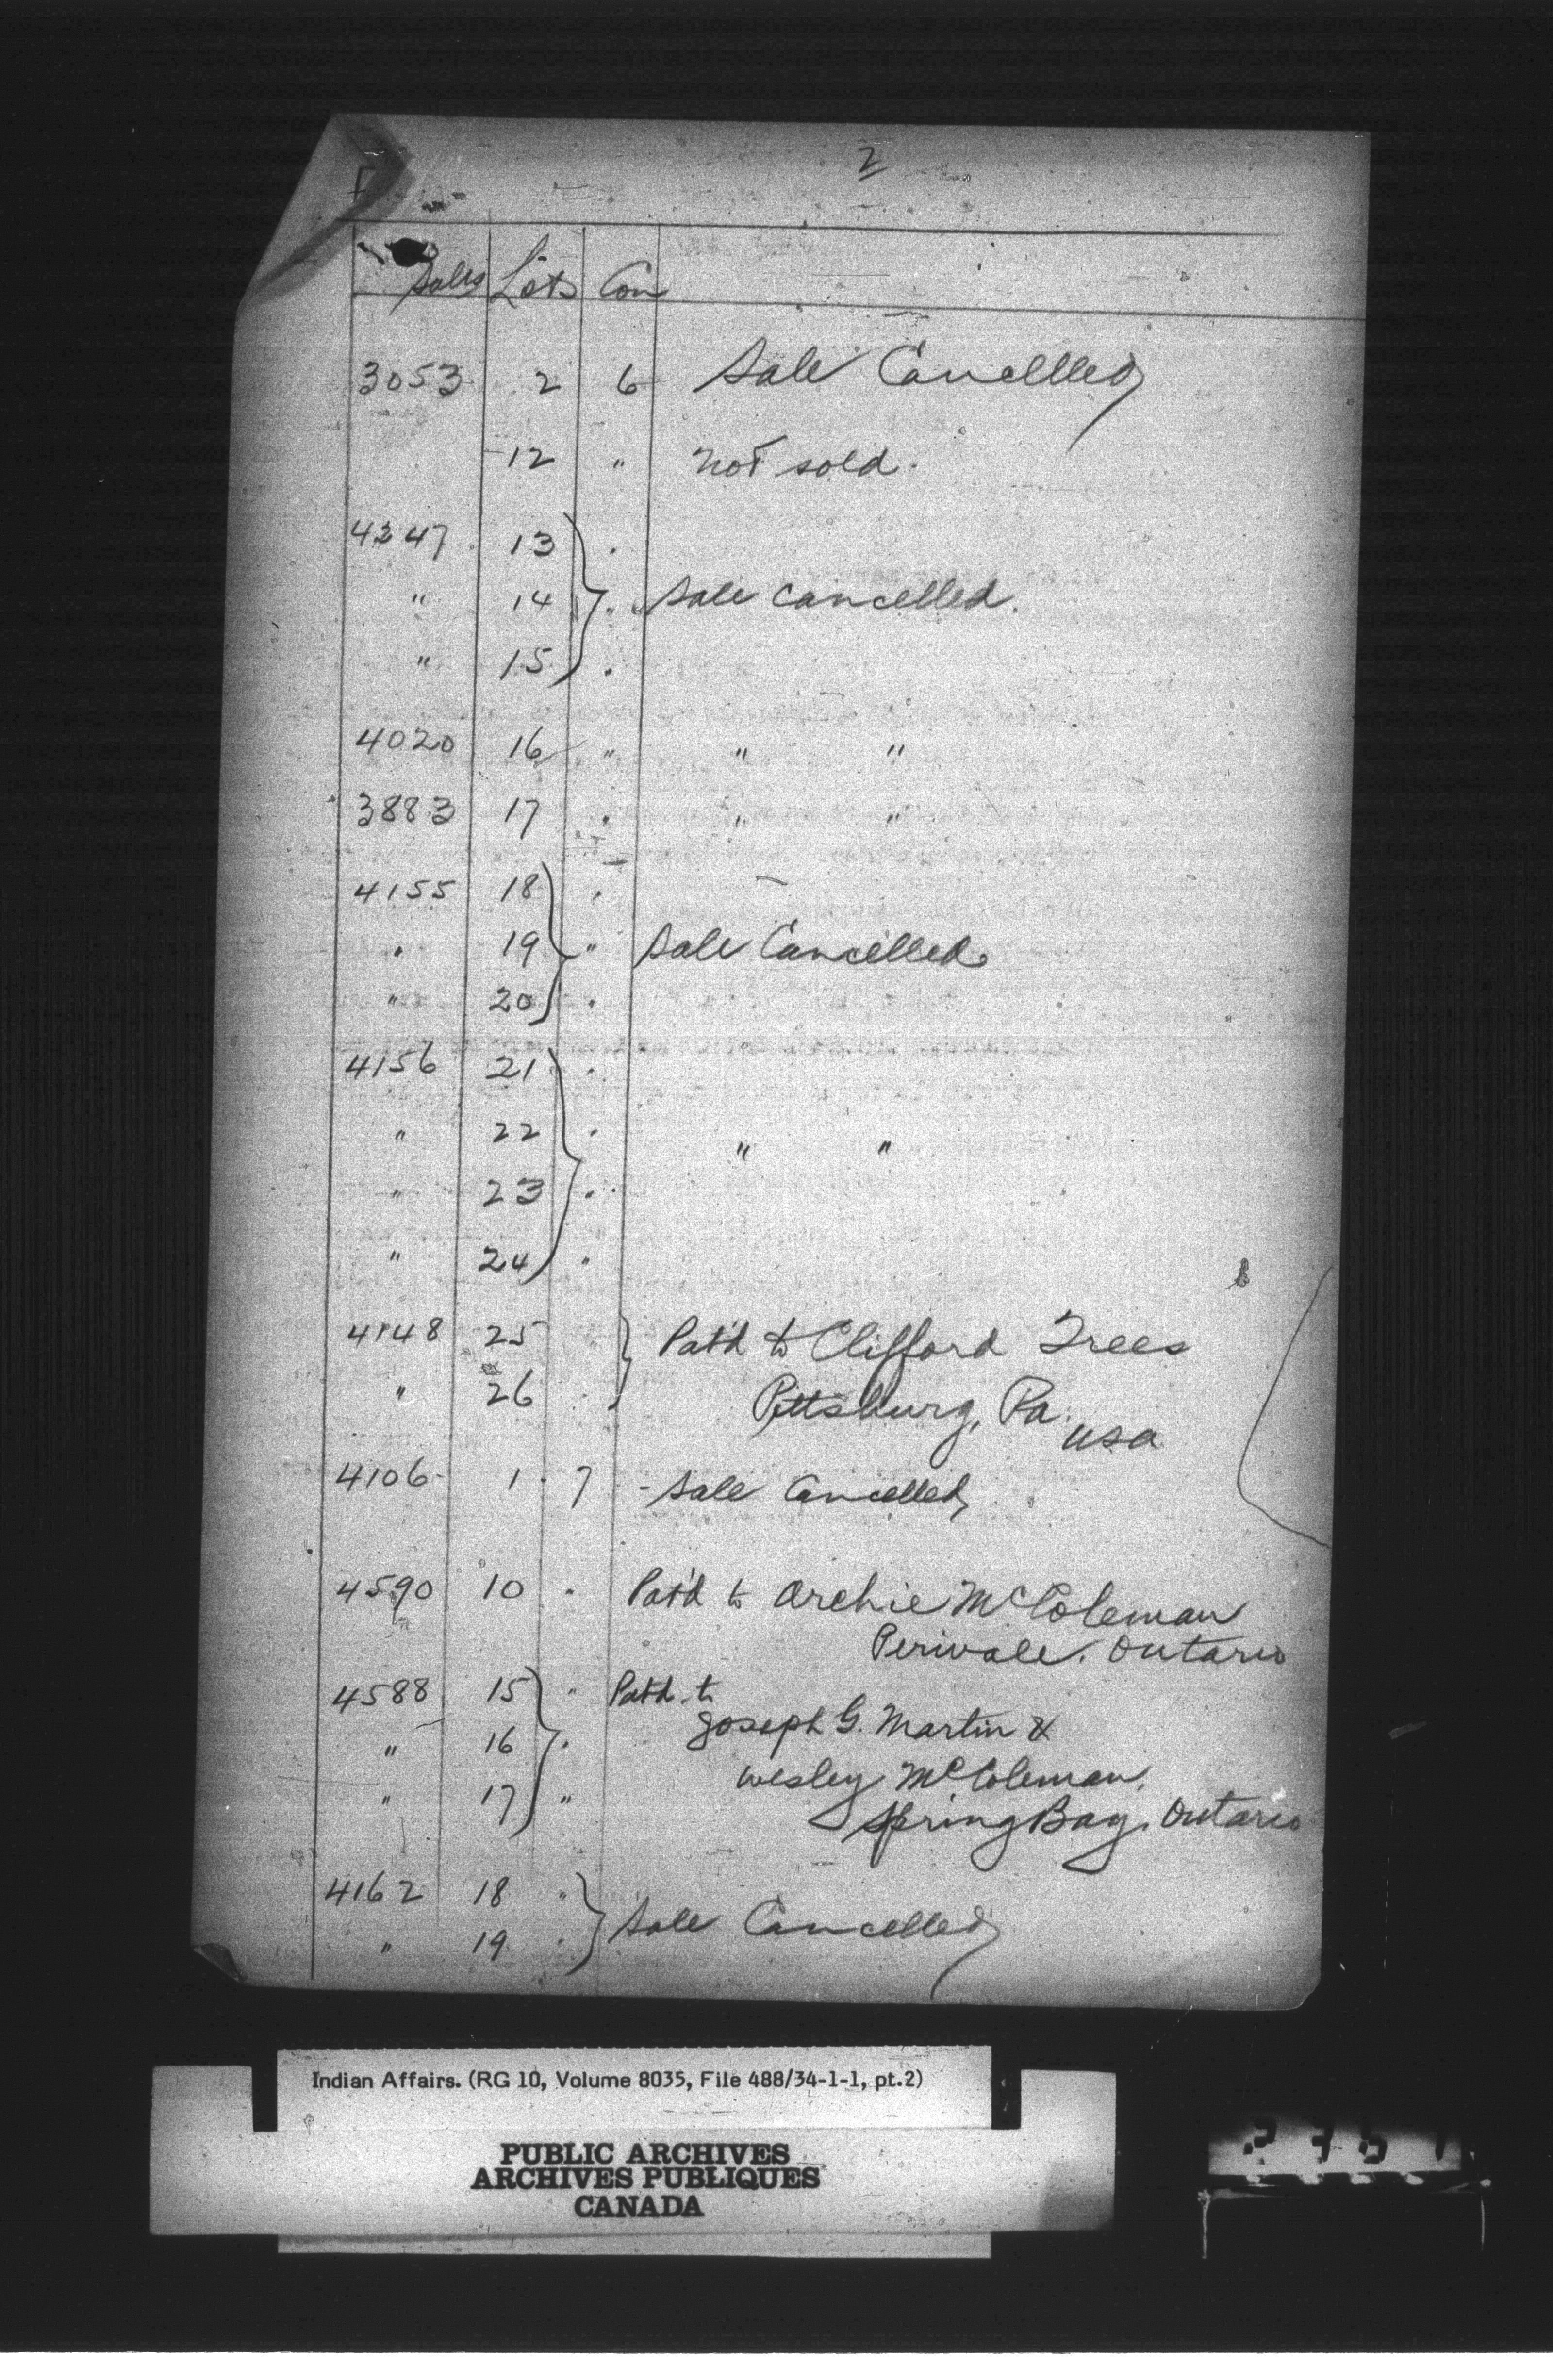 2
F
Sales Lots Con
3053 2 6 Sale Cancellled
12 " not sold.
4247 13 "
" 14 " Sale cancelled.
" 15 "
4020 16 " " "
3883 17 " " "
4155 18 "
" 19 " Sale Cancelled
" 20 "
4156 21 "
" 22 " " "
" 23 "
" 24 "
4148 25 " Pat'd to Clifford Trees
" 26 " Pittsburg, Pa. USA
4106 1 7 - Sale Cancelled
4590 10 " Pat'd to Archie McColeman
Perivale, Ontario
4588 15 " Pat'd to
Joseph G. Martin &
" 16 "
Wesley McColeman,
" 17 "
Spring Bay, Ontario
4162 18 "
Sale Cancelled
" 19 "
Indian Affairs. (RG 10, Volume 8035, File 488/34-1-1, pt.2)
PUBLIC ARCHIVES
ARCHIVES PUBLIQUES
CANADA